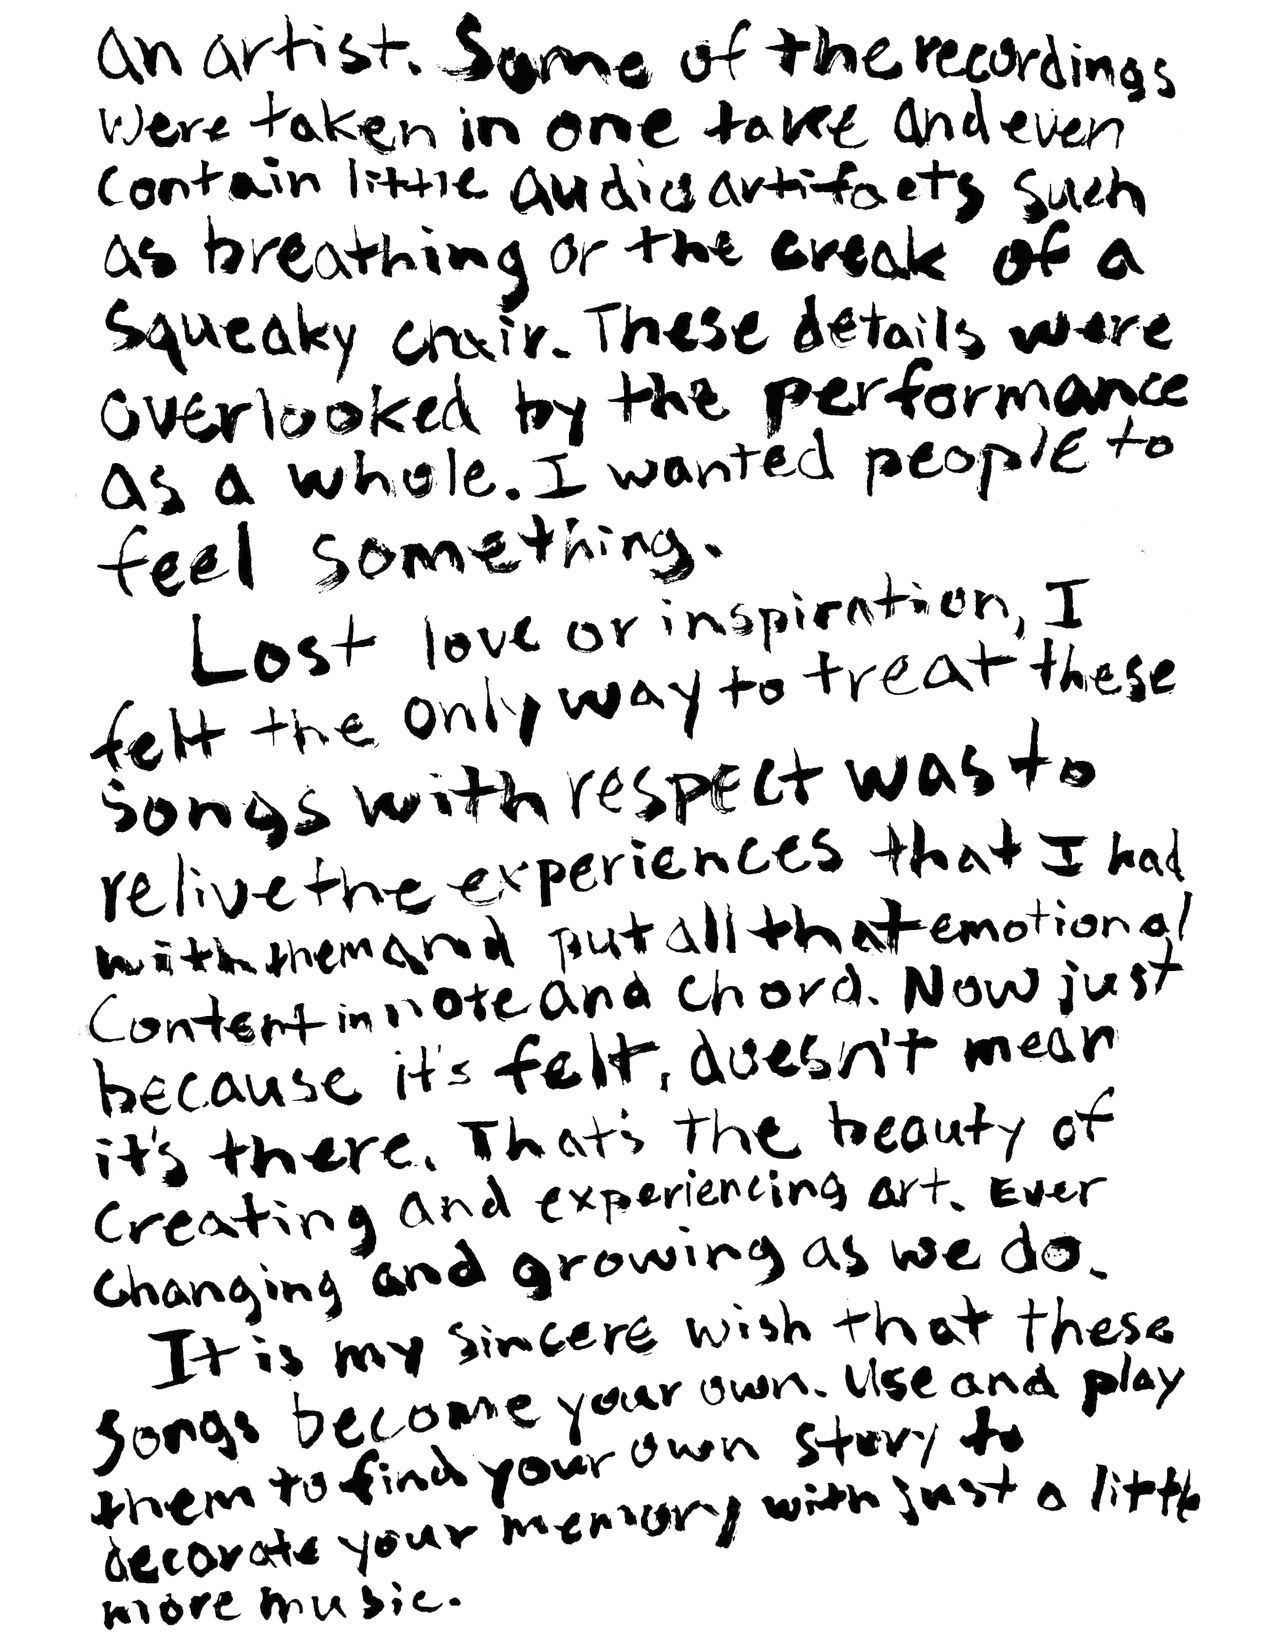 an artist. Some of the recordings
were taken in one take and even
contain little audio artifacts such
as breathing or the creak of a
squeaky chair. These details were
overlooked by the performance
as a whole. I wanted people to
feel something.
Lost love or inspiration, I
felt the only way to treat these
songs with respect was to
relive the experiences that I had
with them and put all that emotional
content in note and chord. Now just
because it's felt, doesn't mean
it's there. That's the beauty of
creating and experiencing art. Ever
changing and growing as we do.
It is my sincere wish that these
songs become your own. Use and play
them to find your own story to
decorate your memory with just a little
more music.